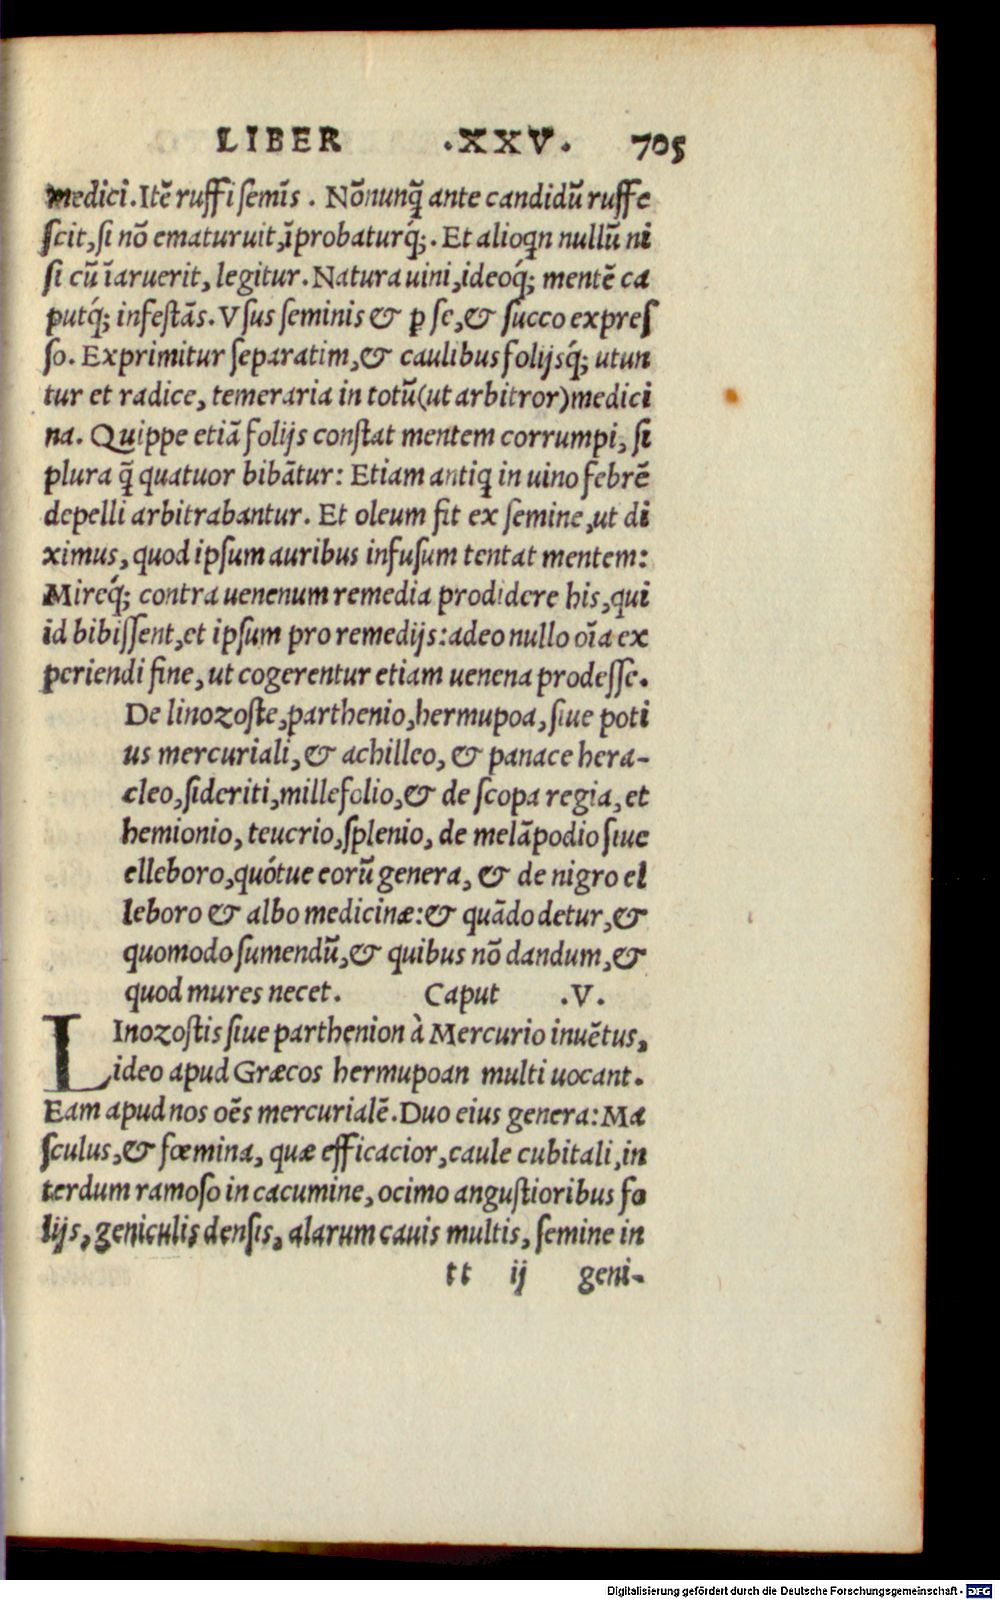 LIBER .XXV. 705
medici. Itē ruffi semīs. Nōnunq̄ ante candidū ruffe
scit, si nō ematuruit, īprobaturq́;. Et alioqn nullū ni
si cū īaruerit, legitur. Natura uini, ideoq́; mentē ca
putq́; infestās. Vsus seminis & ꝑ se, & succo expres
so. Exprimitur separatim, & caulibus folijsq́; utun
tur et radice, temeraria in totū (ut arbitror) medici
na. Quippe etiā folijs constat mentem corrumpi, si
plura q̄ quatuor bibātur: Etiam antiq in uino febrē
depelli arbitrabantur. Et oleum fit ex semine, ut di
ximus, quod ipsum auribus infusum tentat mentem:
Mireq́; contra uenenum remedia prodidere his, qui
id bibissent, et ipsum pro remedijs: adeo nullo oīa ex
periendi fine, ut cogerentur etiam uenena prodesse.
De linozoste, parthenio, hermupoa, siue poti
us mercuriali, & achilleo, & panace hera-
cleo, sideriti, millefolio, & de scopa regia, et
hemionio, teucrio, splenio, de melāpodio siue
elleboro, quótue eorū genera, & de nigro el
leboro & albo medicinæ: & quādo detur, &
quomodo sumendū, & quibus nō dandum, &
quod mures necet. Caput .V.
LInozostis siue parthenion à Mercurio inuētus,
ideo apud Græcos hermupoan multi uocant.
Eam apud nos oēs mercurialē. Duo eius genera: Ma
sculus, & fœmina, quæ efficacior, caule cubitali, in
terdum ramoso in cacumine, ocimo angustioribus fo
lijs, geniculis densis, alarum cauis multis, semine in
tt ij geni-
Digitalisierung gefördert durch die Deutsche Forschungsgemeinschaft - DFG